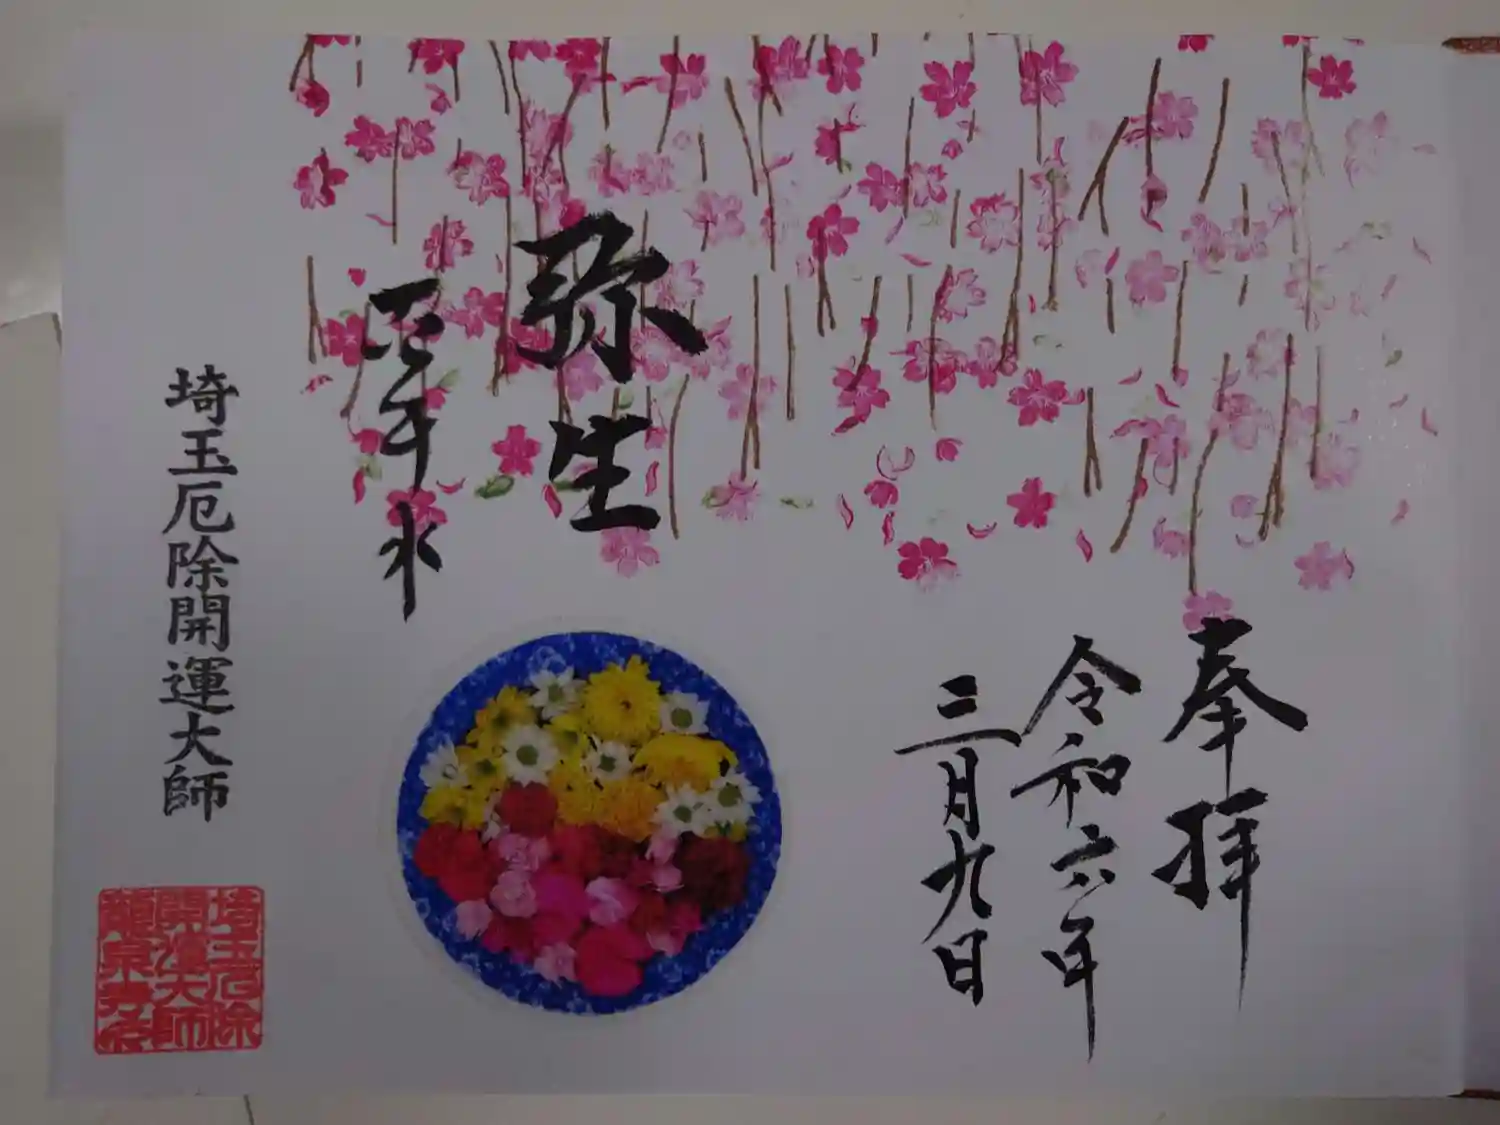 奉拝
令和六年
三月九日
弥生
花手水
埼玉厄除開運大師
埼玉厄除
開運大師
龍泉寺